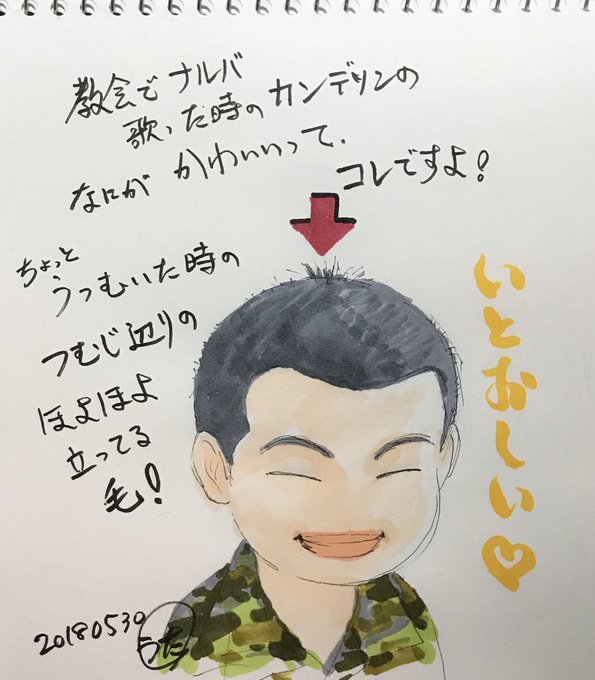 教会でナルバ
歌った時のカンデリンの
なにがかわいいって、
コレですよ!
ちょっと
うつむいた時の
つむじ辺りの
ほよほよ
立ってる
毛!
いとおしい♡
20180530
うた